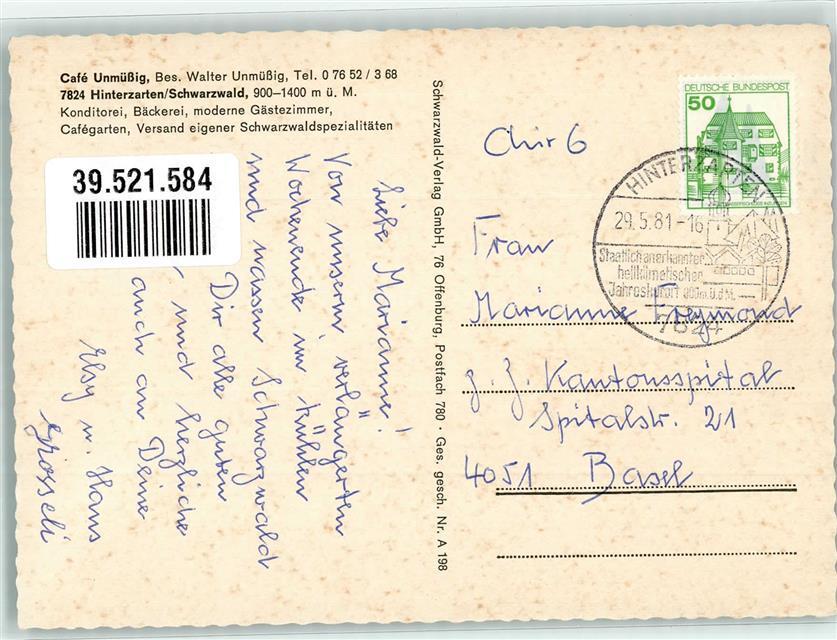 Café Unmüßig, Bes. Walter Unmüßig, Tel. 0 76 52 / 3 68
7824 Hinterzarten/Schwarzwald, 900–1400 m ü. M.
Konditorei, Bäckerei, moderne Gästezimmer,
Cafégarten, Versand eigener Schwarzwaldspezialitäten
39.521.584
Liebe Marianne!
Von unserm verlängerten
Wochenende im kühlen
und nassen Schwarzwald
Dir alle guten
und herzliche
auch an Deine
Elsy u. Hans
Schwarzwald-Verlag GmbH, 76 Offenburg, Postfach 780 · Ges. gesch. Nr. A 198
DEUTSCHE BUNDESPOST
50
HINTERZARTEN
29.5.81-16
Staatlich anerkannter
heilklimatischer
Jahreskurort
7824
Chir 6
Frau
Marianne Freymond
z. Z. Kantonsspital
Spitalstr. 21
4051 Basel